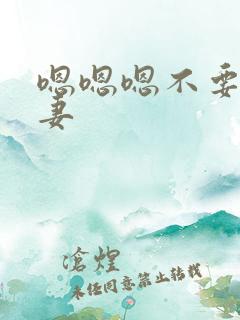 嗯嗯嗯不要
妻
滄煌
未经同意禁止转载